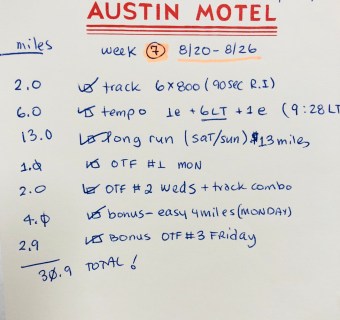 AUSTIN MOTEL
miles week 7 8/20 - 8/26
2.0 track 6x800 (90 sec R.I)
6.0 tempo 1e + 6LT + 1e (9:28 LT
13.0 long run (sat/sun) 13 miles
1.0 OTF #1 MON
2.0 OTF #2 Weds + track combo
4.0 bonus - easy 4miles (MONDAY)
2.9 BONUS OTF #3 Friday
30.9 TOTAL!